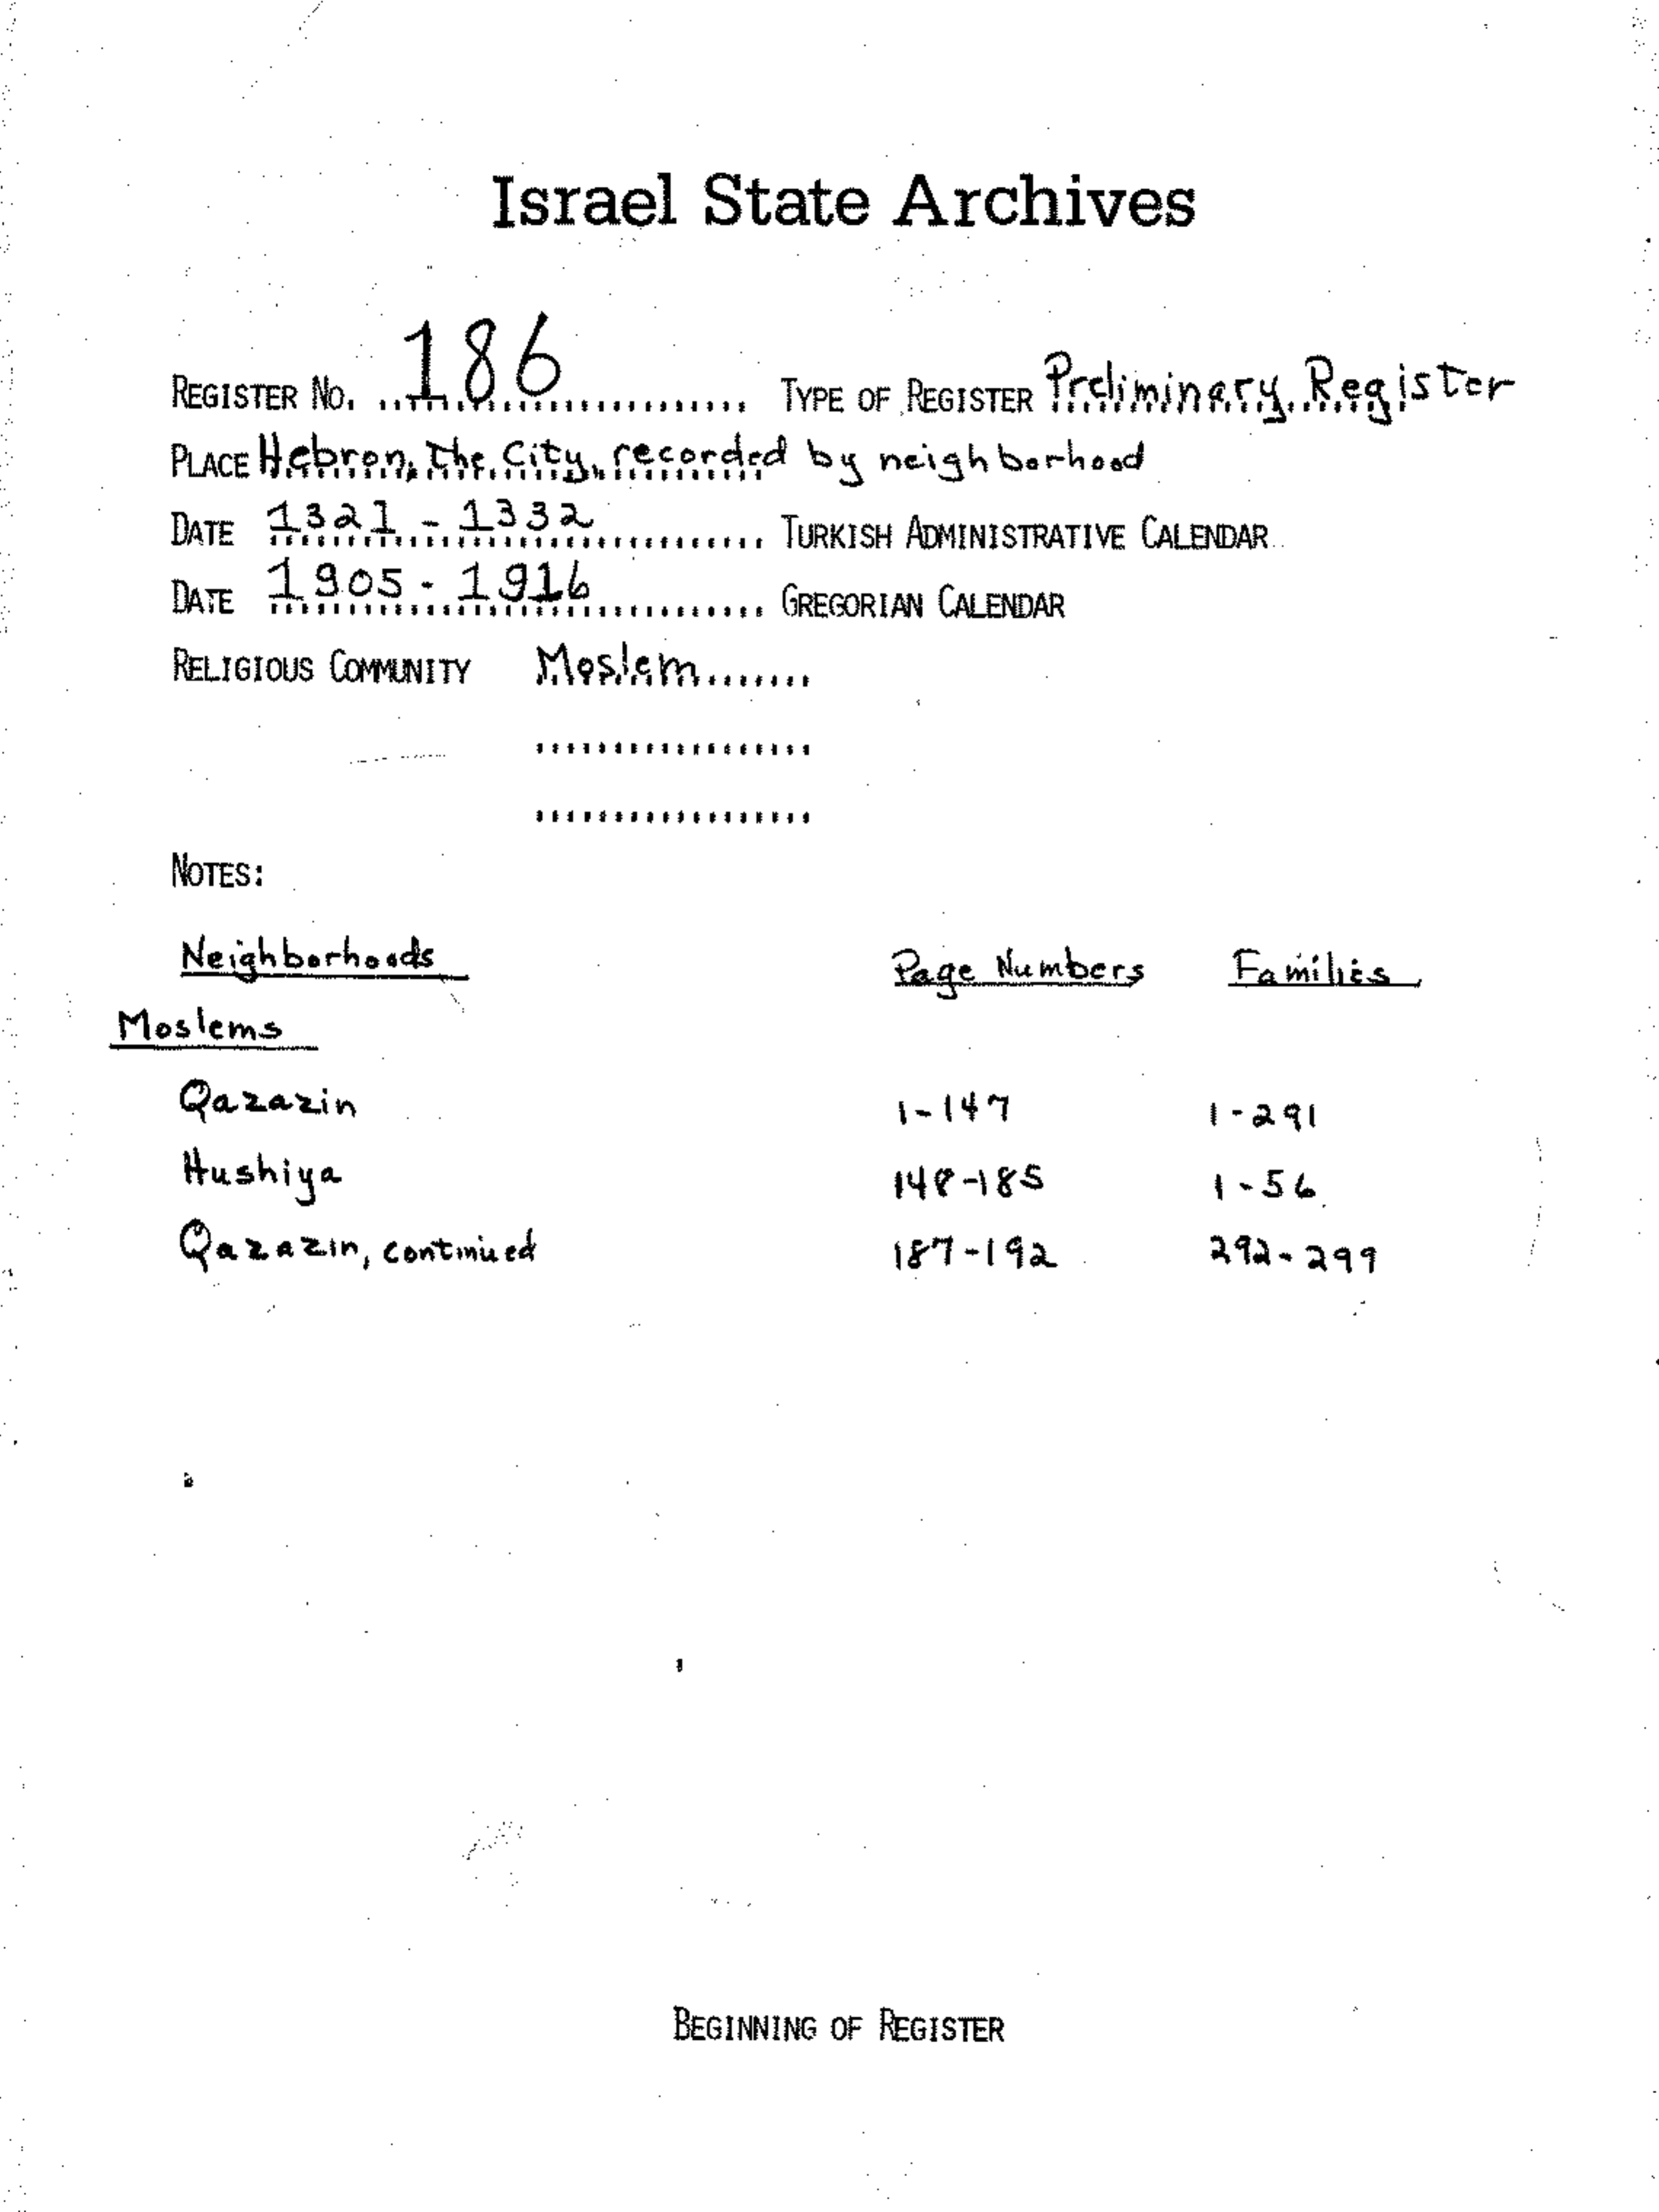 Israel State Archives
REGISTER NO. 186 TYPE OF REGISTER Preliminary Register
PLACE Hebron, The City, recorded by neighborhood
DATE 1321 - 1332 TURKISH ADMINISTRATIVE CALENDAR
DATE 1905 - 1916 GREGORIAN CALENDAR
RELIGIOUS COMMUNITY Moslem
NOTES:
Neighborhoods Page Numbers Families
Moslems
Qazazin 1-147 1-291
Hushiya 148-185 1-56
Qazazin, continued 187-192 292-299
BEGINNING OF REGISTER